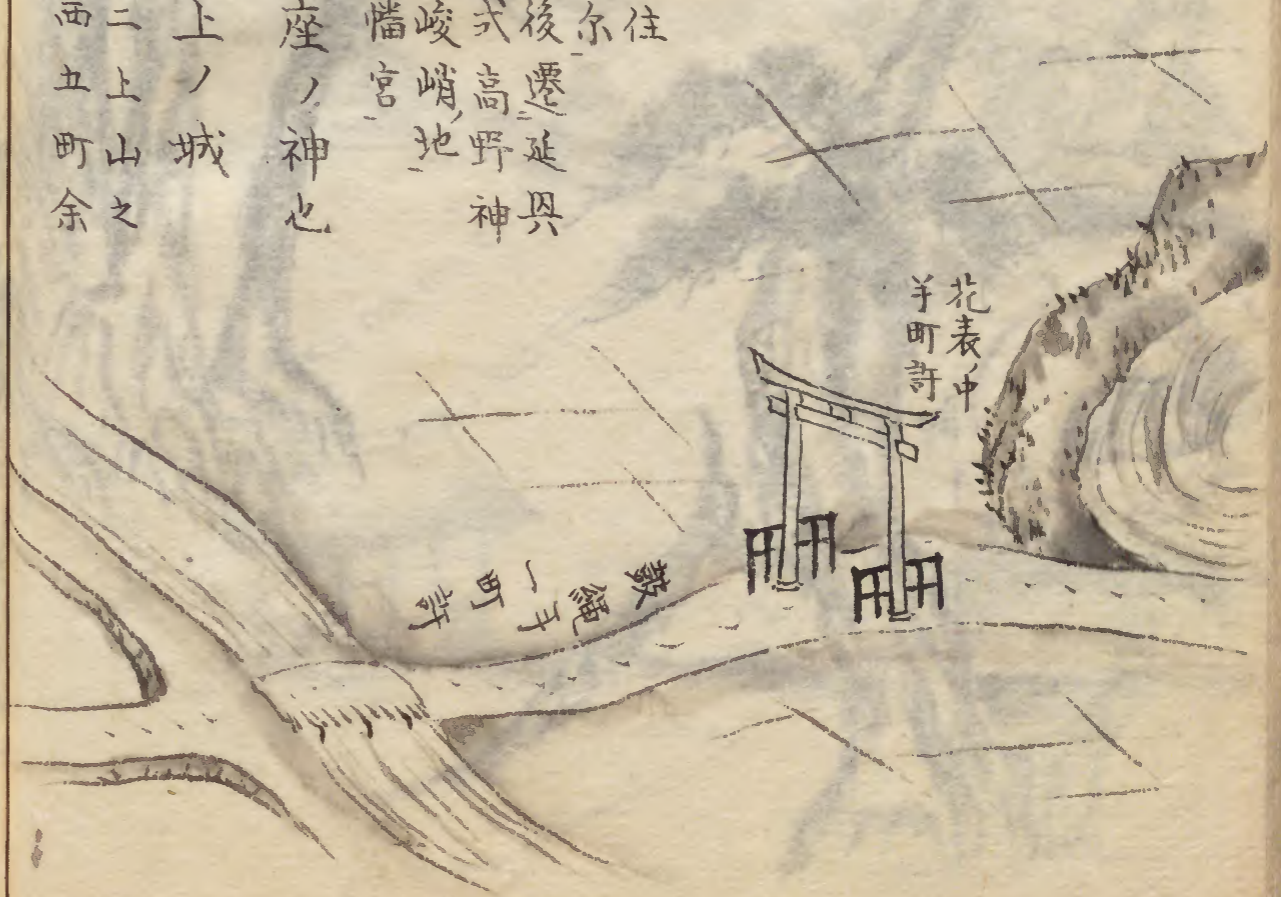 住
尓
後遷延與
式高野神
峻峭ノ地
幡宮
座ノ神也
上ノ城
二上山之
西五町余
花表ノ中
半町許
一町許